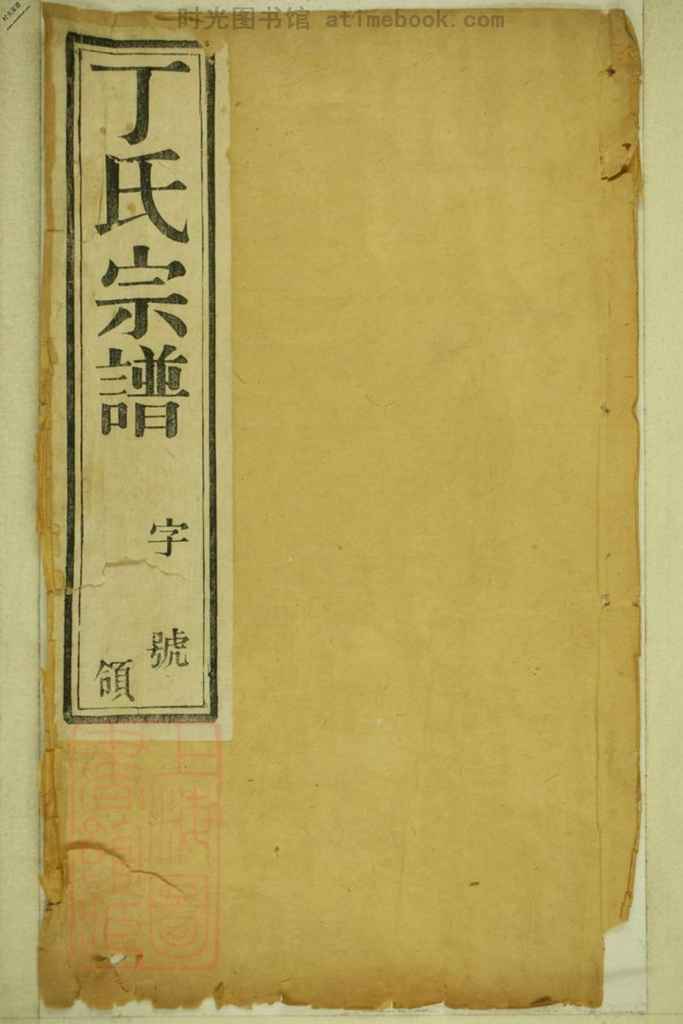 时光图书馆 atimebook.com
丁氏宗譜
字號
領